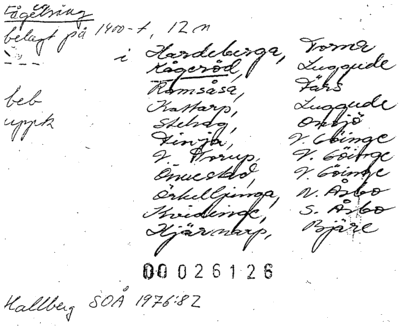 Fågelsång
belagt på 1400-t, 12 n
i Hardeberga, Torna
Kågeröd, Luggude
Ramsåsa, Färs
Kattarp, Luggude
beb Stehag, Onsjö
uppk Finja, V. Göinge
V. Torup, V. Göinge
Önnestad, V. Göinge
Örkelljunga, N. Åsbo
Kvidinge, S. Åsbo
Hjärnarp, Bjäre
00026126
Hallberg SOÅ 1976:82